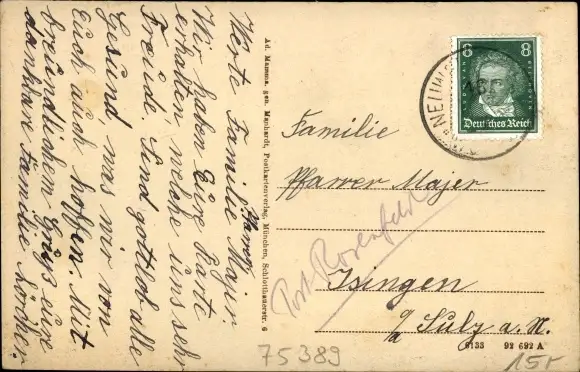 Werte Familie Pfarrer Majer.
Wir haben Eure Karte
erhalten, welche uns sehr
Freude. Sind gottlob alle
Gesund was wir von
Euch auch hoffen. Mit
freundlichem Gruß eure
dankbare Familie
Ad. Mamma gen. Maphardt, Postkartenverlag, München, Schlotthauerstr. 6
8 8
Deutsches Reich
Familie
Pfarrer Majer
Post Rosenfeld
Isingen
Sulz a. N.
9133 92 692 A
75389
15r